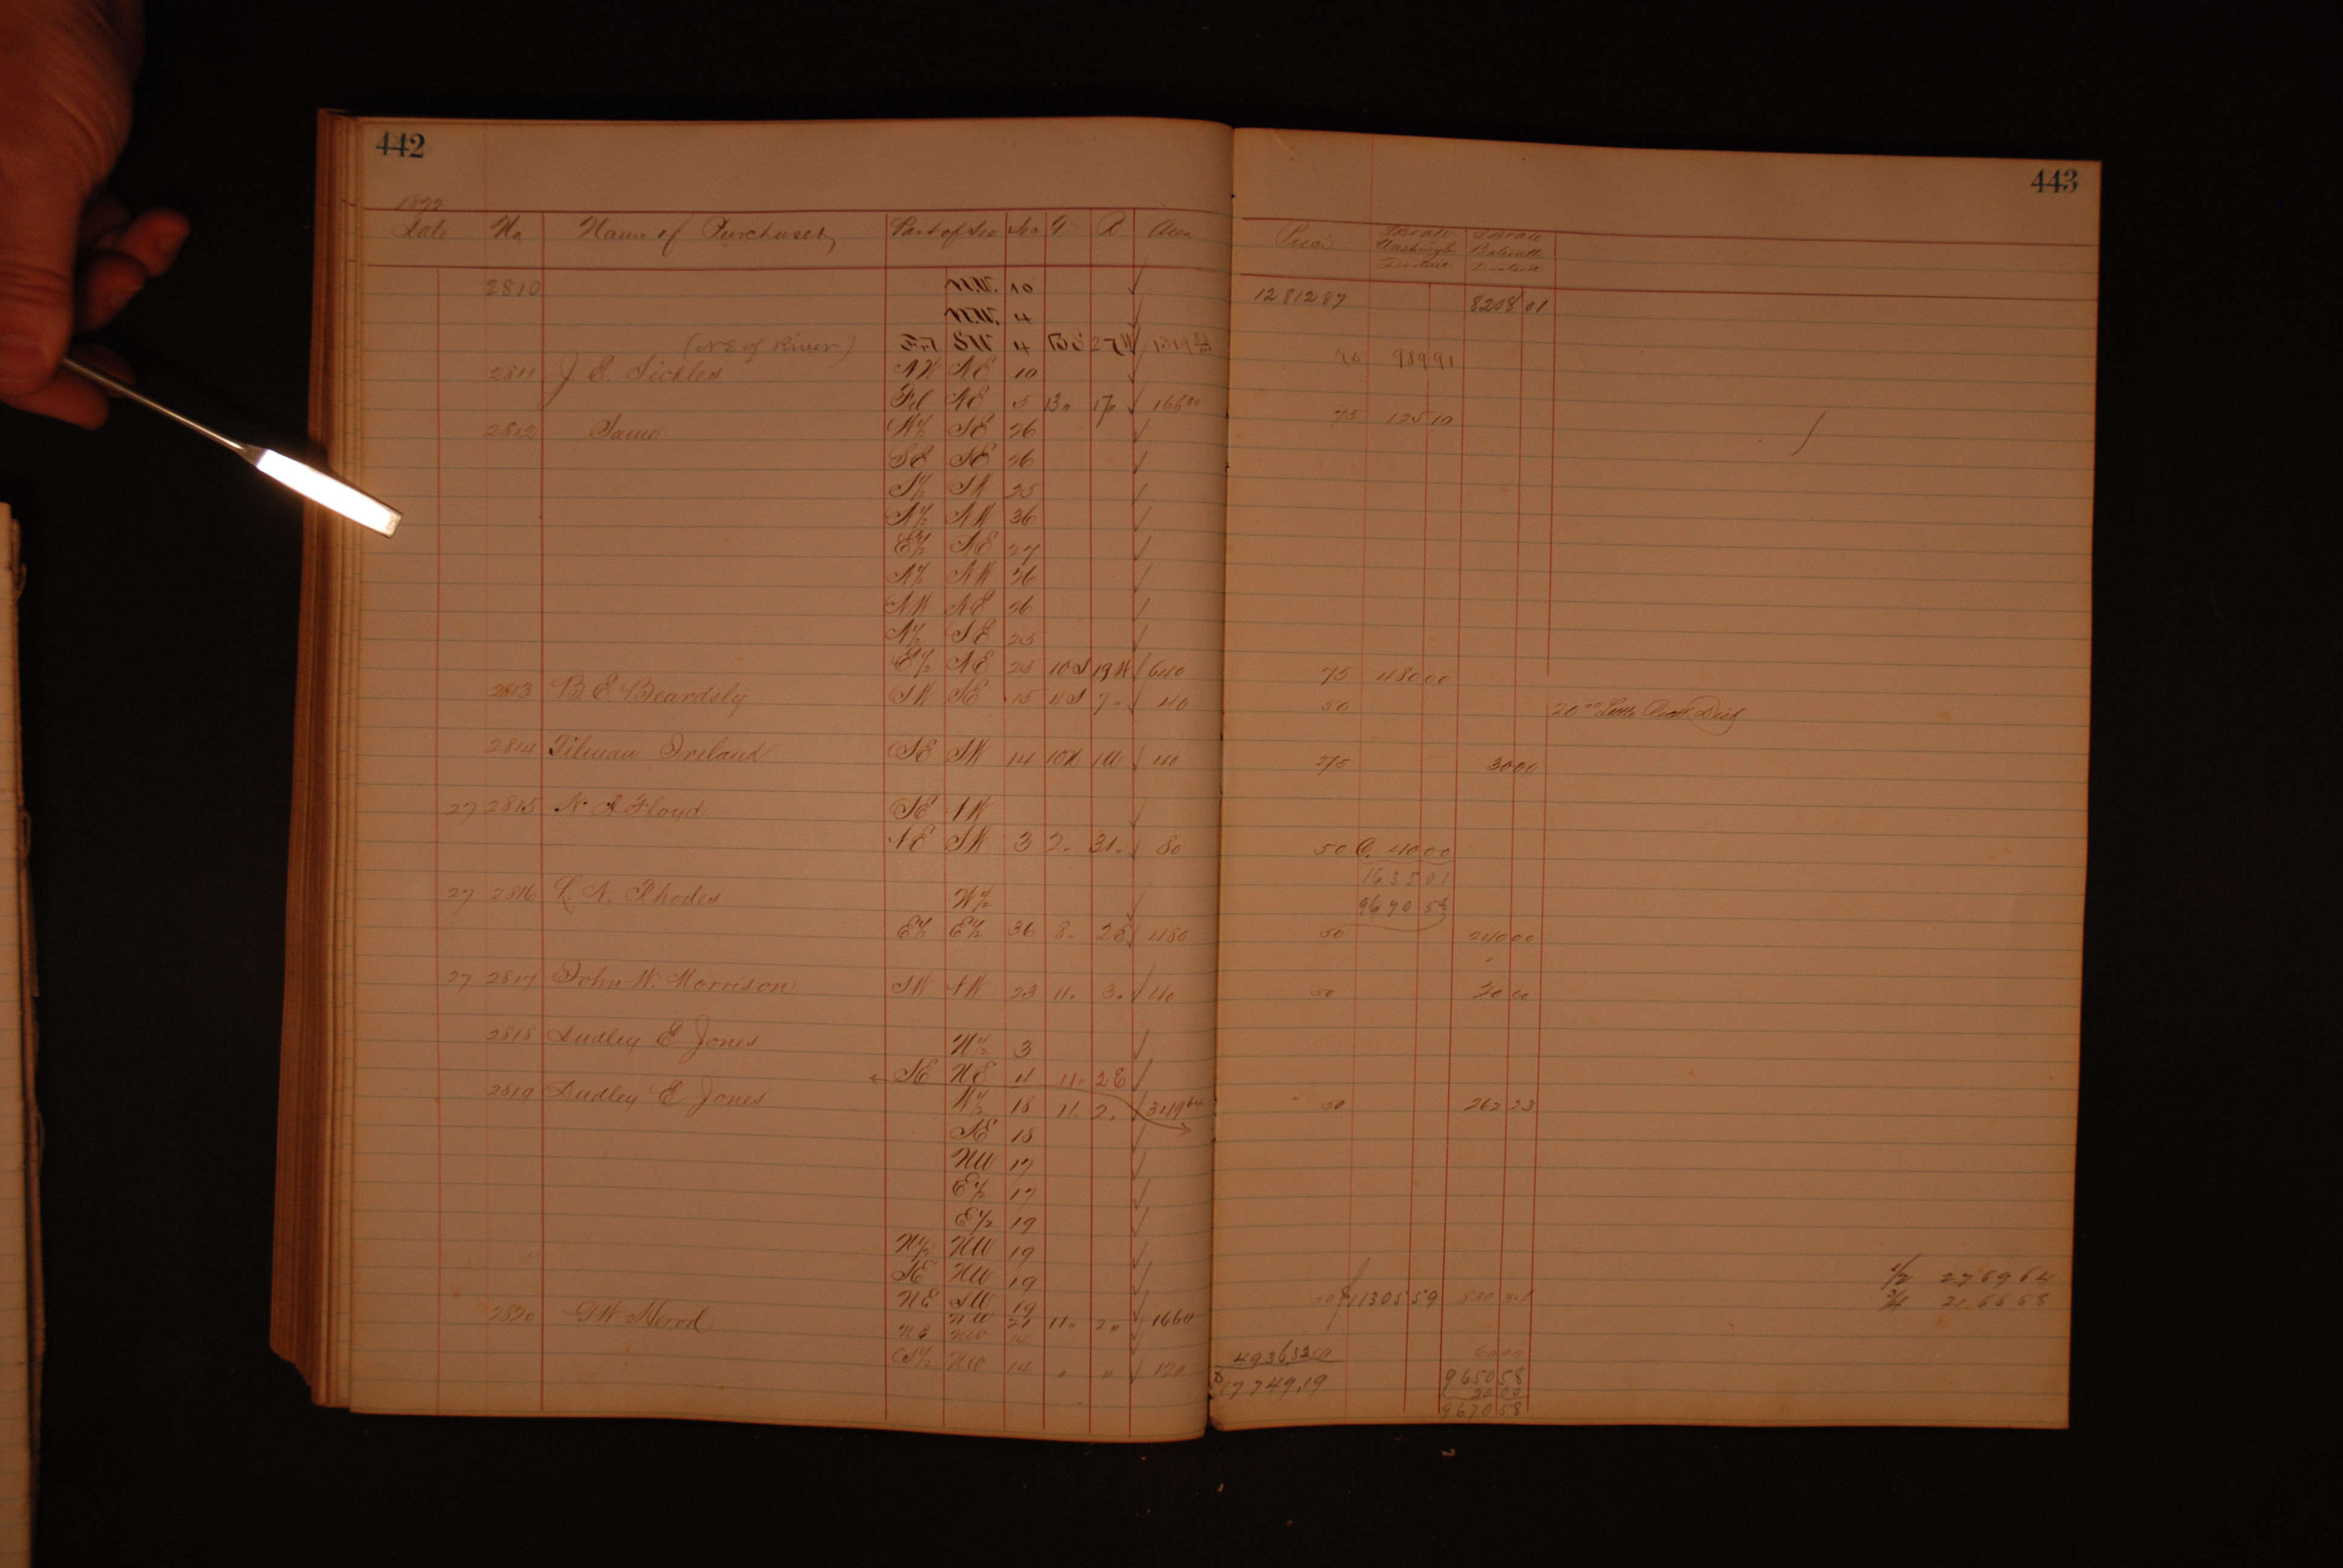 442
443
Date No. Name of Purchaser Part of Sec Sec T R Area Price
2810 N.W. 10 1281287 8208 01
N.W. 4
(NE of River) Frl SW 4 13S 27W 1319 76 989 91
2811 J. E. Sickles NW NE 10
Frl NE 5 13" 17" 166 80 75 125 10
2812 Same W½ SE 26
SE NE 26
S½ SW 25
N½ NW 36
E½ NE 27
N½ NW 26
NW NE 26
N½ SE 25
E½ NE 25 10S 19W 640 75 480 00
2813 B. E. Beardsly SW SE 15 4S 7" 40 50 20 00 Little Rock Dist
2814 Tilman Ireland SE SW 14 10N 1W 40 75 30 00
27 2815 N. A Floyd SE NW
NE SW 3 2" 31" 80 50 C. 40 00
1635 01
9670 58
27 2816 L. N. Rhodes W½
E½ E½ 36 8" 2E 480 50 240 00
27 2817 John W. Morrison SW NW 23 11" 3" 40 50 20 00
2818 Dudley E Jones N½ 3
SE NE 4 11" 2E
2819 Dudley E Jones W½ 18 11" 2" 349 64 50 262 23
SE 18
NW 17
E½ 17
E½ 19
N½ NW 19
SE NW 19 1/2 2769 64
NE SW 19 50 11305 59 830 3/4 2 66 68
2820 G W Herod NW 21 11" 2" 1660
NE NW 14
S½ NW 14 " " 120 4936.32 60 00
$17749.19 9650 58
20 00
9670 58